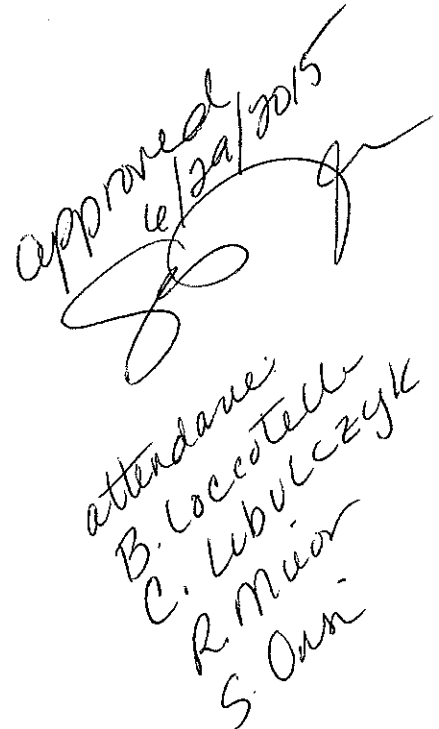 approved
6/29/2015
attendance:
B. Loccotelli
C. Lubulczyk
R. Muior
S. Orsi